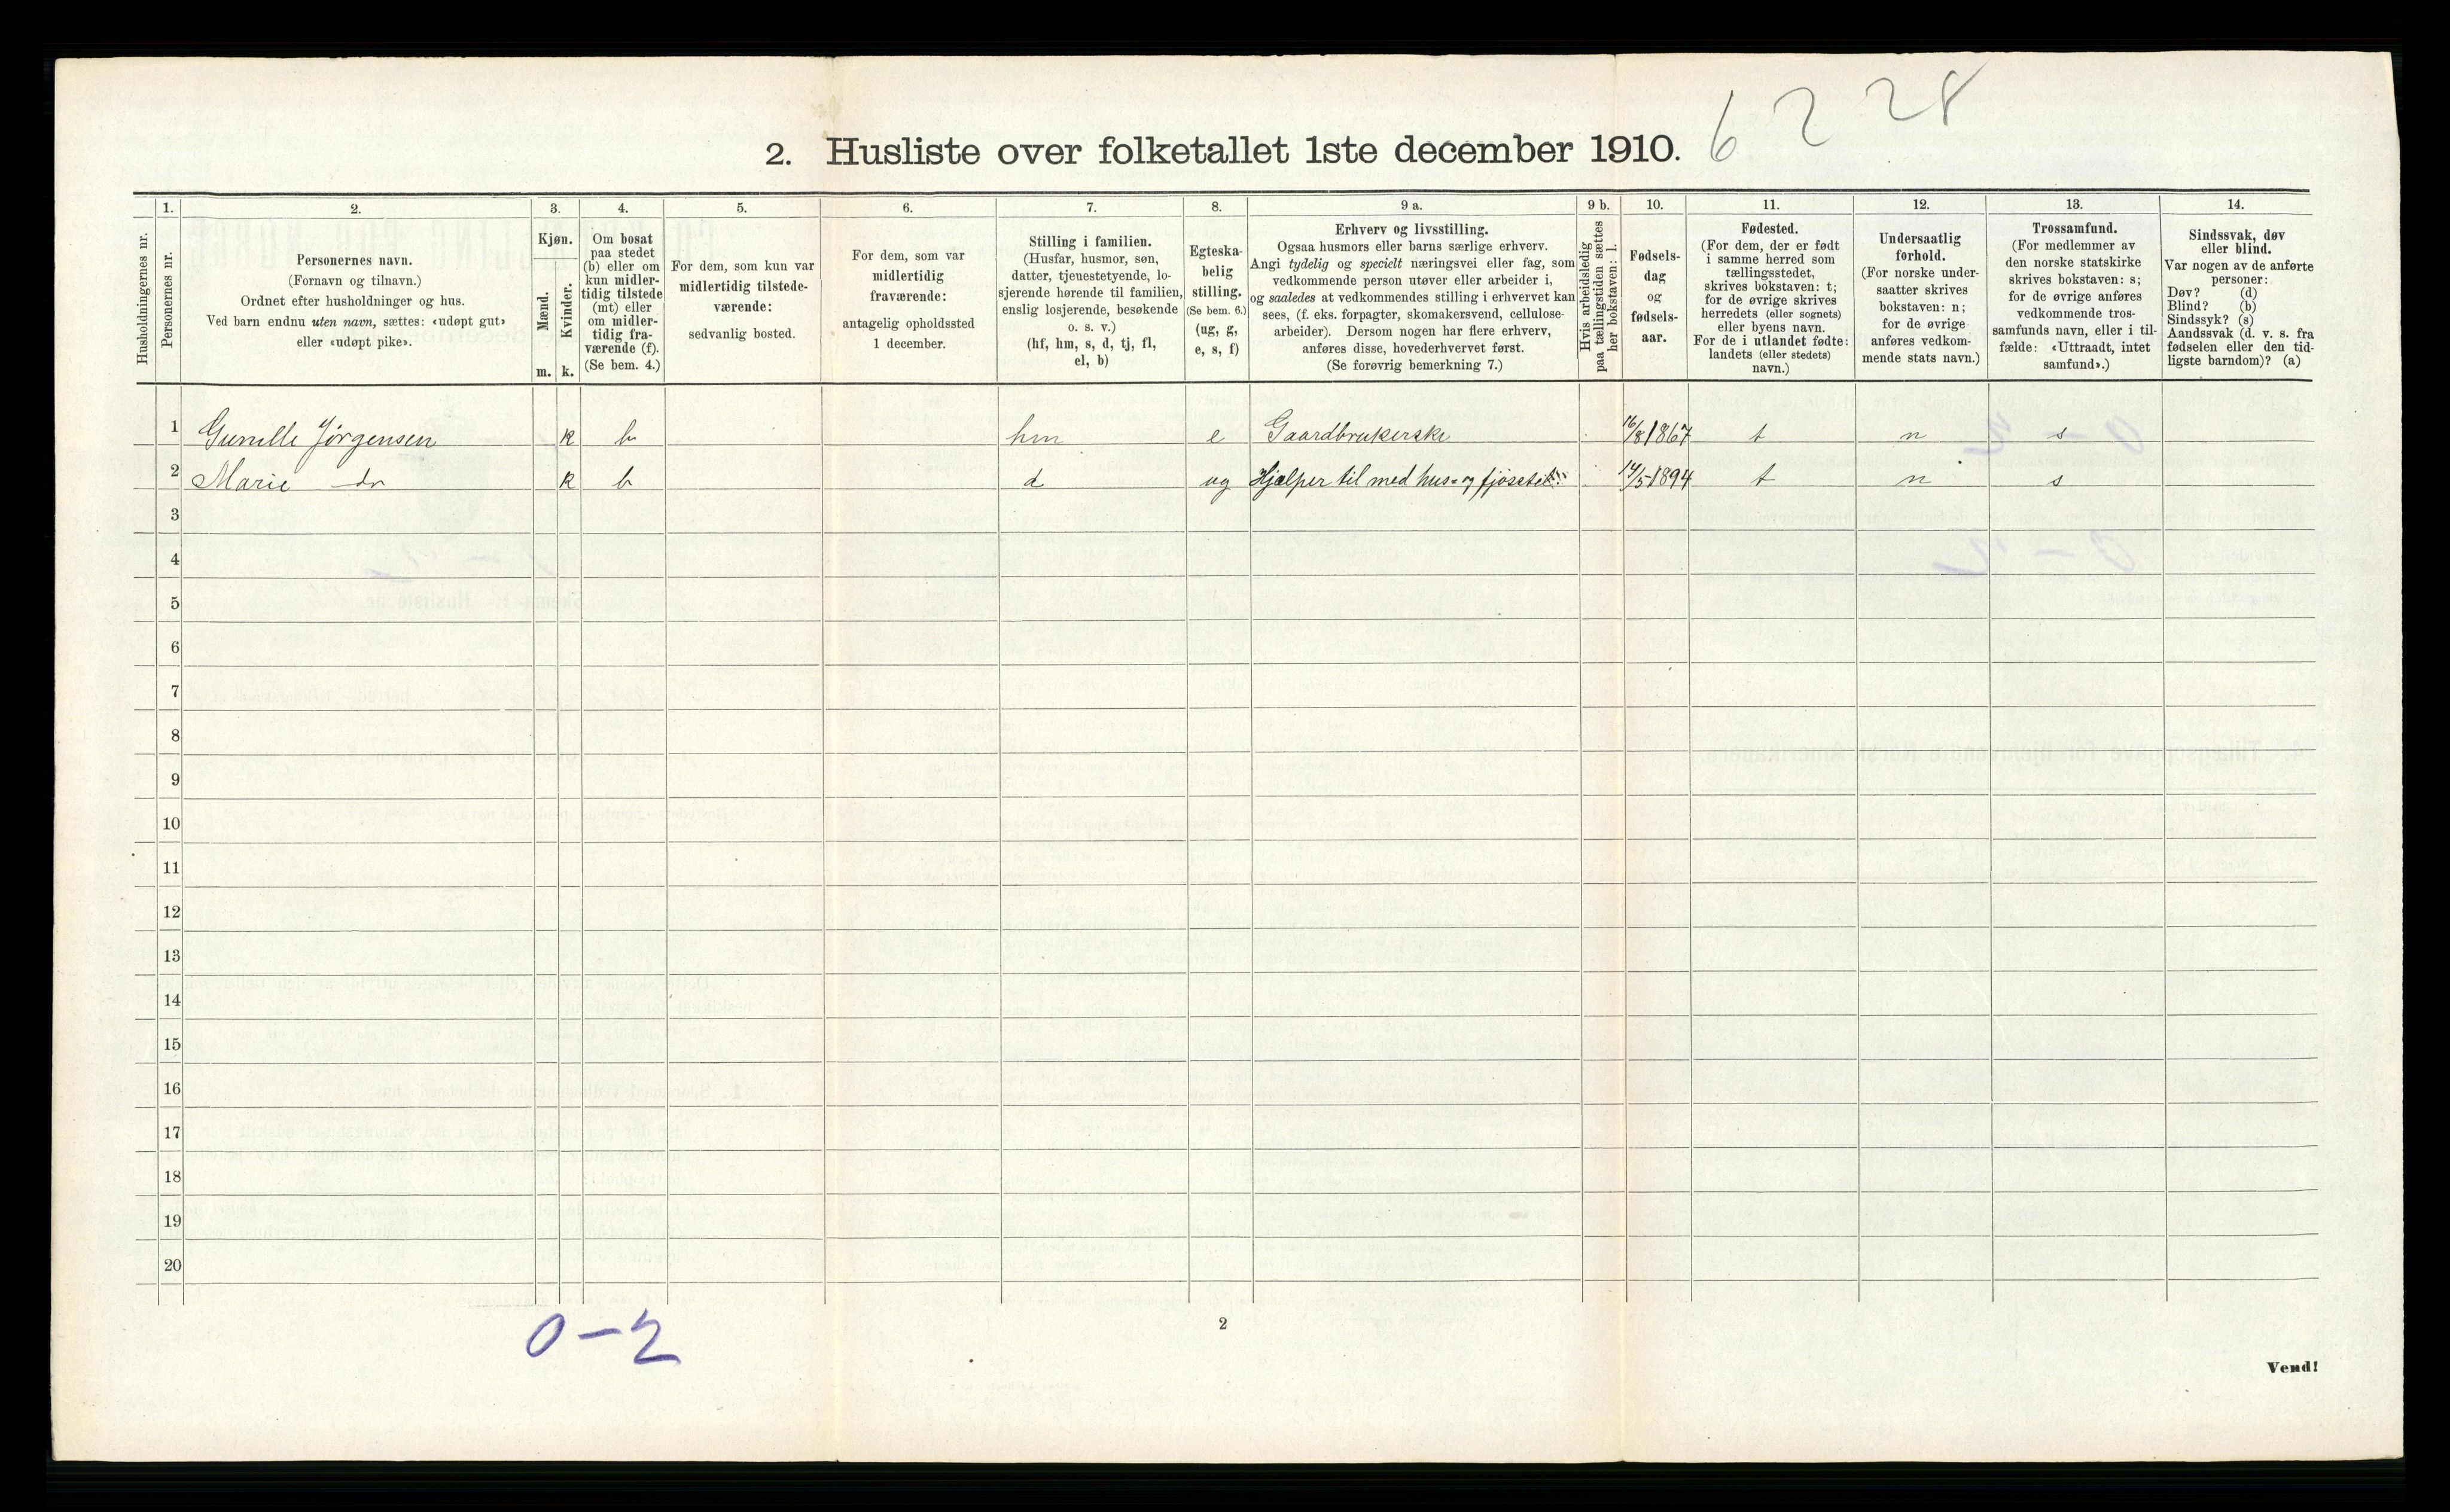 6 2 28
2. Husliste over folketallet 1ste december 1910.
Husholdningernes nr.
1.
Personernes nr.
2.
Personernes navn.
(Fornavn og tilnavn.)
Ordnet efter husholdninger og hus.
Ved barn endnu uten navn, sættes: «udøpt gut»
eller «udøpt pike».
3.
Kjøn.
Mænd.
m.
Kvinder.
k.
4.
Om bosat
paa stedet
(b) eller om
kun midler-
tidig tilstede
(mt) eller
om midler-
tidig fra-
værende (f).
(Se bem. 4.)
5.
For dem, som kun var
midlertidig tilstede-
værende:
sedvanlig bosted.
6.
For dem, som var
midlertidig
fraværende:
antagelig opholdssted
1 december.
7.
Stilling i familien.
(Husfar, husmor, søn,
datter, tjenestetyende, lo-
sjerende hørende til familien,
enslig losjerende, besøkende
o. s. v.)
(hf, hm, s, d, tj, fl,
el, b)
8.
Egteska-
belig
stilling.
(Se bem. 6.)
(ug, g,
e, s, f)
9 a.
Erhverv og livsstilling.
Ogsaa husmors eller barns særlige erhverv.
Angi tydelig og specielt næringsvei eller fag, som
vedkommende person utøver eller arbeider i,
og saaledes at vedkommendes stilling i erhvervet kan
sees, (f. eks. forpagter, skomakersvend, cellulose-
arbeider). Dersom nogen har flere erhverv,
anføres disse, hovederhvervet først.
(Se forøvrig bemerkning 7.)
9 b.
Hvis arbeidsledig
paa tællingstiden sættes
her bokstaven: l.
10.
Fødsels-
dag
og
fødsels-
aar.
11.
Fødested.
(For dem, der er født
i samme herred som
tællingsstedet,
skrives bokstaven: t;
for de øvrige skrives
herredets (eller sognets)
eller byens navn.
For de i utlandet fødte:
landets (eller stedets)
navn.)
12.
Undersaatlig
forhold.
(For norske under-
saatter skrives
bokstaven: n;
for de øvrige
anføres vedkom-
mende stats navn.)
13.
Trossamfund.
(For medlemmer av
den norske statskirke
skrives bokstaven: s;
for de øvrige anføres
vedkommende tros-
samfunds navn, eller i til-
fælde: «Uttraadt, intet
samfund».)
14.
Sindssvak, døv
eller blind.
Var nogen av de anførte
personer:
Døv? (d)
Blind? (b)
Sindssyk? (s)
Aandssvak (d. v. s. fra
fødselen eller den tid-
ligste barndom)? (a)
1 Gunille Jørgensen k b hm e Gaardbrukerske 16/8 1867 t n s
2 Marie do k b d ug Hjælper til med hus- og fjøsstel 14/5 1894 t n s
3
4
5
6
7
8
9
10
11
12
13
14
15
16
17
18
19
20
0-2
2
Vend!